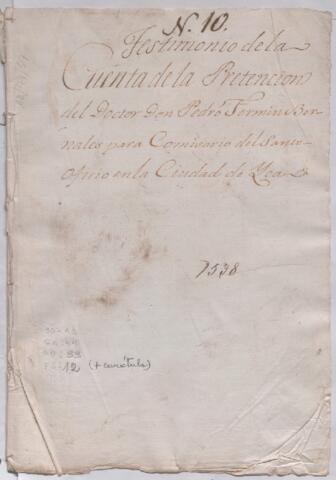 N. 10.
Testimonio de la
Cuenta de la Pretencion
del Doctor Don Pedro Fermin Ber-
nales para Comisario del Santo
oficio en la Ciudad de Yca
1538
12 (+ carátula)